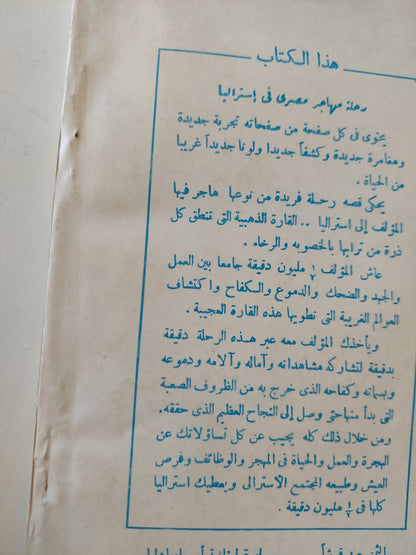 هذا الكتاب
رحلة مهاجر مصرى فى إستراليا
يحتوى فى كل صفحة من صفحاته تجربة جديدة
ومغامرة جديدة وكشفاً جديدا ولونا جديداً غريبا
من الحياة .
يحكى قصه رحلة فريدة من نوعها هاجر فيها
المؤلف إلى استراليا .. القارة الذهبية التى تنطق كل
ذرة من ترابها بالخصوبه والرخاء .
عاش المؤلف ½ مليون دقيقة جامعا بين العمل
والجهد والضحك والدموع والكفاح واكتشاف
العوالم الغريبة التى تطويها هذه القارة العجيبة .
ويأخذك المؤلف معه عبر هذه الرحلة دقيقة
بدقيقة لتشاركه مشاهداته وآماله وآلامه ودموعه
وبسماته وكفاحه الذى خرج به من الظروف الصعبة
التى بدأ منها حتى وصل إلى النجاح العظيم الذى حققه.
ومن خلال ذلك كله يجيب عن كل تساؤلاتك عن
الهجرة والعمل والحياة فى المهجر والوظائف وفرص
العيش وطبيعه المجتمع الاسترالى ويعطيك استراليا
كلها فى ½ مليون دقيقة .